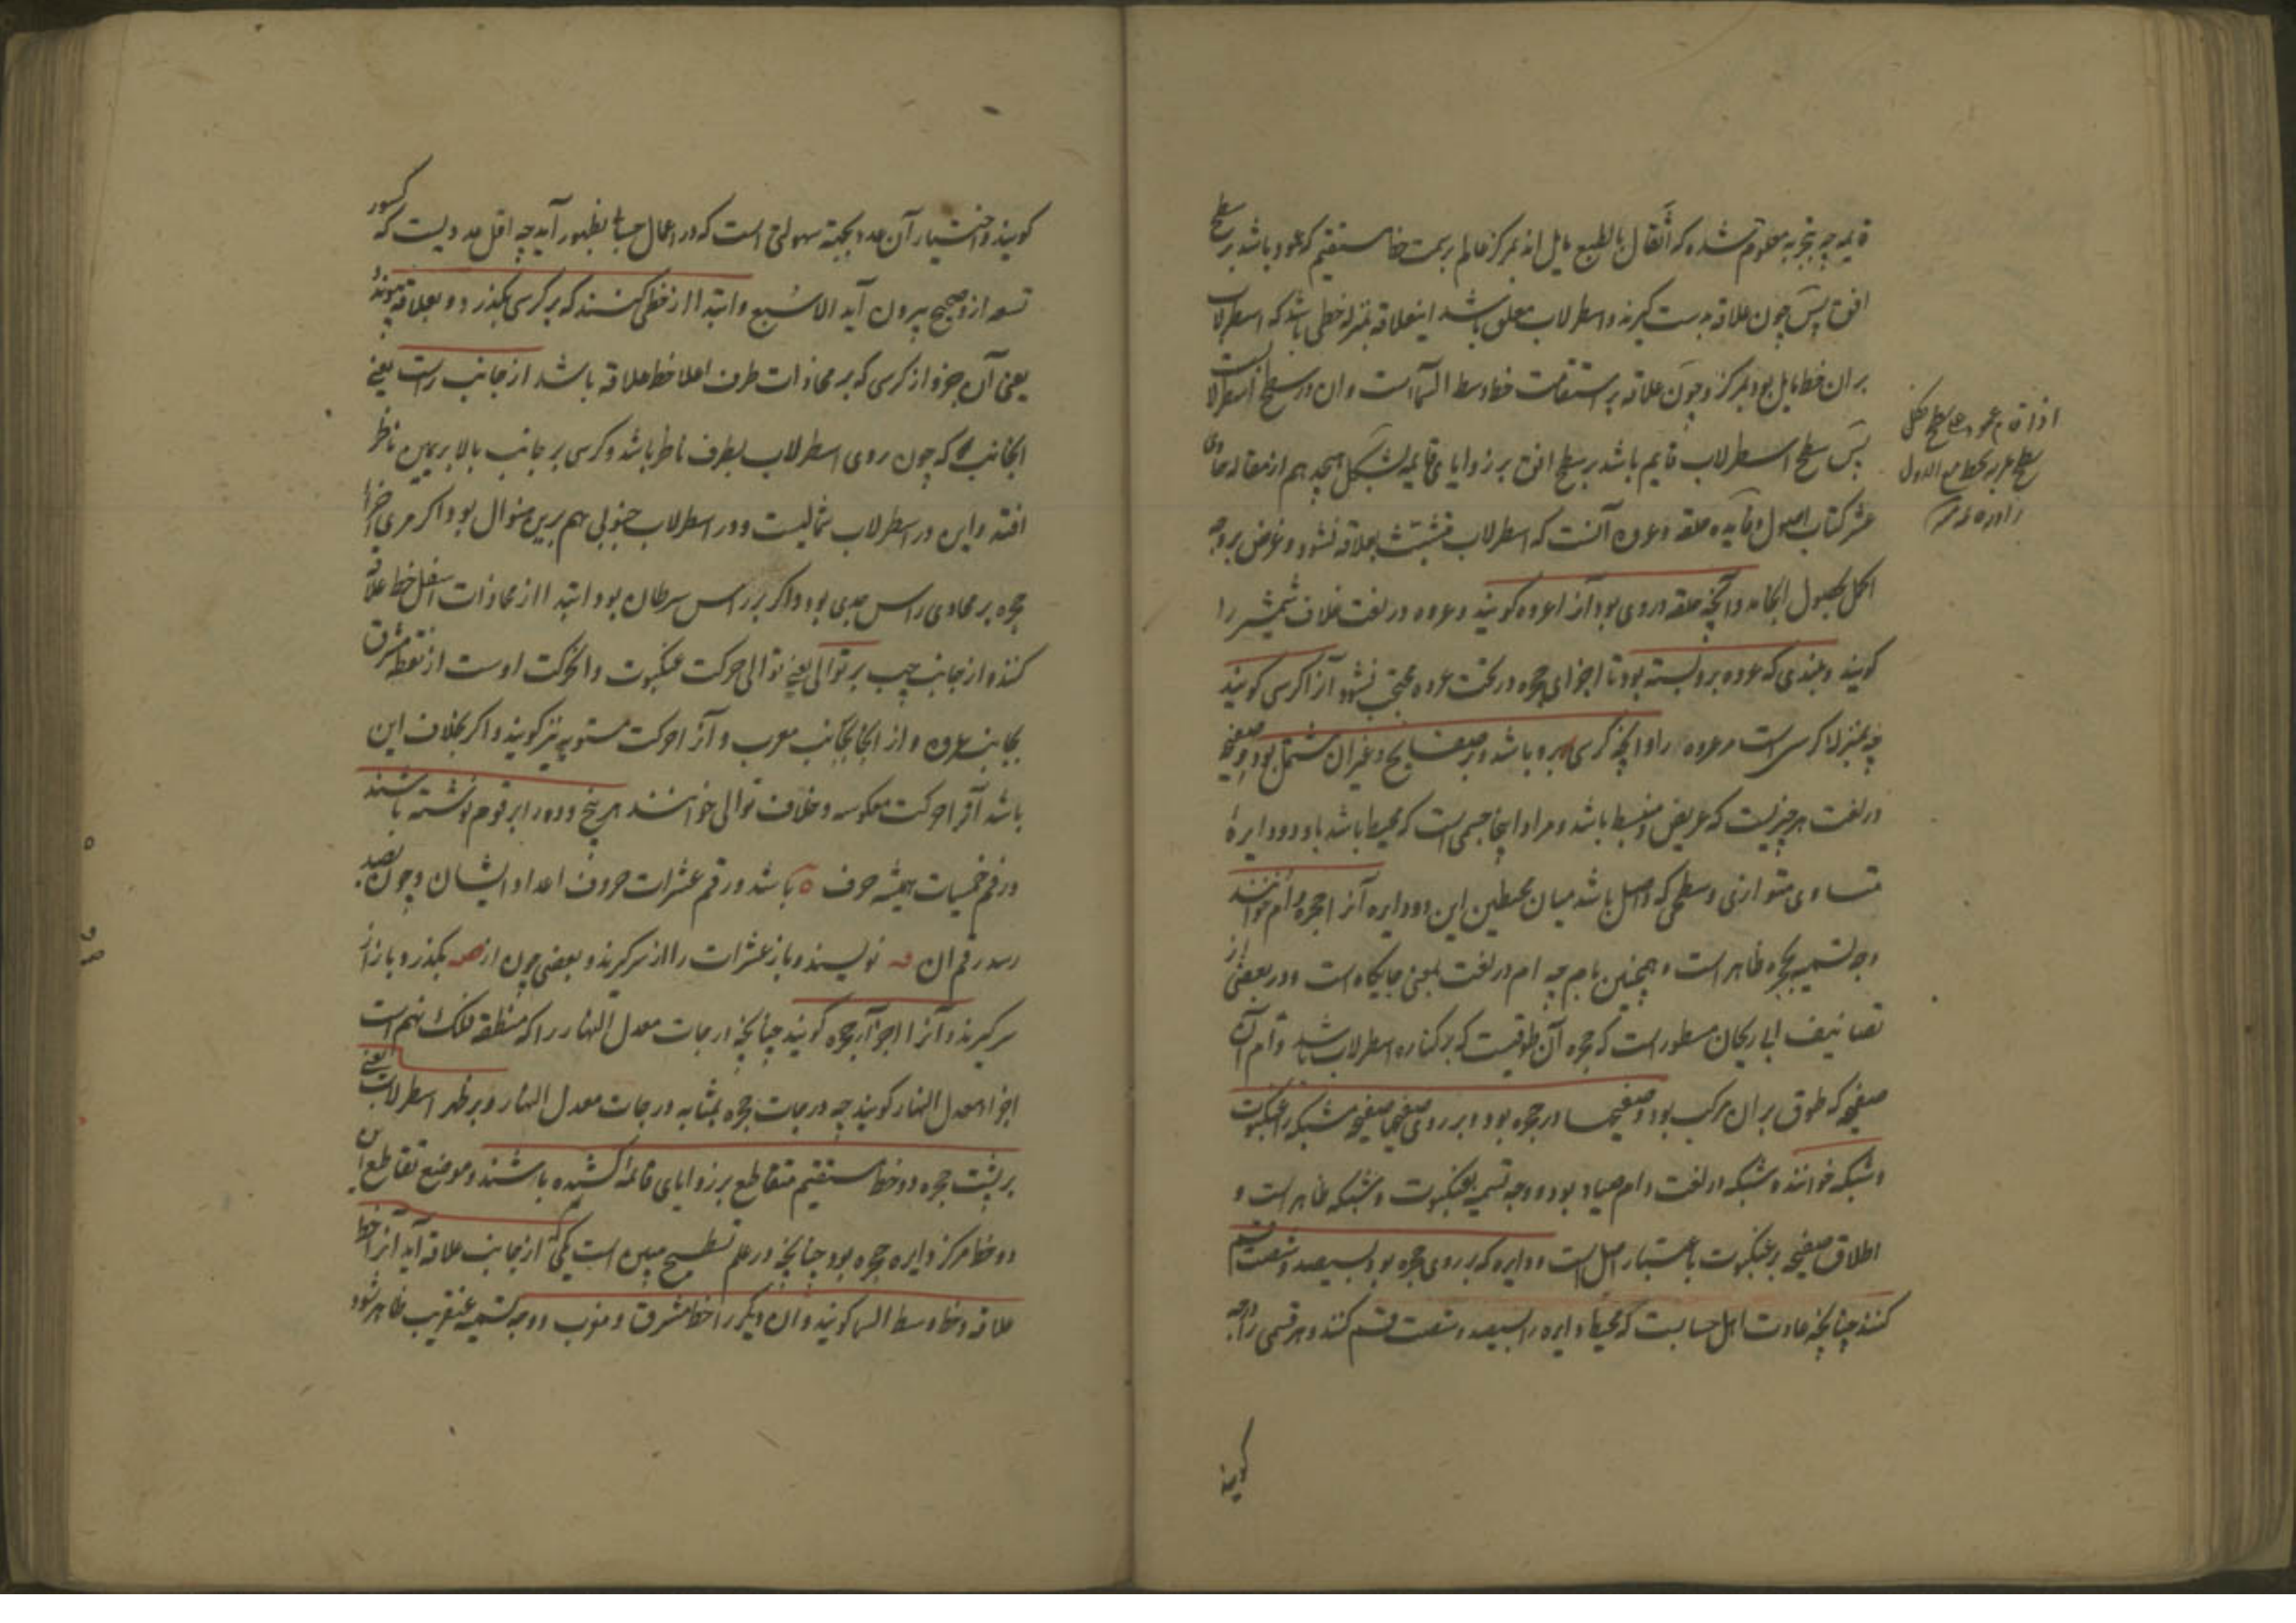 قایمه چه بتجربه معلوم شده که اثقال بالطبع مایل اند بمرکز عالم بر سمت خط مستقیم که عمود باشد بر سطح
افق پس چون علاقه بدست گیرند و اسطرلاب معلق باشد اینعلاقه بمنزله خطی باشد که اسطرلاب
بران خط مایل بود بمرکز و چون علاقه بر استقامت خط وسط السمآست و ان در سطح اسطرلابست
پس سطح اسطرلاب قایم باشد بر سطح افق بر زوایای قایمه بشکل هجدهم از مقاله حادی
عشر کتاب اصول و فایده حلقه و عروه آنست که اسطرلاب متشبث بعلاقه نشود و غرض بر وجه
اکمل بحصول انجامد و آنچه حلقه در وی بود آنرا عروه کویند و عروه در لغت غلاف شمشیر را
کویند و بلندی که عروه برو بسته بود تا اجزای حجره در تحت عروه محتجب نشود آنرا کرسی کویند
چه بمنزله کرسی است مر عروه را و آنچه کرسی برو باشد و بر صفایح و غیر ان مشتمل بود و صفیحه
در لغت هر چیزیست که عریض و منبسط باشد و مراد اینجا جسمی است که محیط باشد باو دو دایرهٔ
متساوی متوازی و سطحی که واصل باشد میان محیطین این دو دایره آنرا حجره و ام خوانند
وجه تسمیه بحجره ظاهر است و همچنین بام چه ام در لغت بمعنی جایکاه است و در بعضی از
تصانیف ابی ریحان مسطور است که حجره آن طوقیست که بر کناره اسطرلاب باشد و ام آن
صفیحه که طوق بر ان مرکب بود و صفیحها در حجره بود و بر روی صفیحها صفیحه مشبکه را عنکبوت
و شبکه خوانند و شبکه در لغت دام صیاد بود و وجه تسمیه بعنکبوت و شبکه ظاهر است و
اطلاق صفیحه بر عنکبوت باعتبار اصل است و دایره که بر روی حجره بود بسیصد و شصت قسم
کنند چنانچه عادت اهل حسابست که محیط دایره را بسیصد و شصت قسم کنند و هر قسمی را درجه
کویند
اذا قام عمود علی سطح فکل
سطح یمر بخط مع الاول
کویند و اختیار آن عدد بجهة سهولتی است که در اعمال حساب بظهور آید چه اقل عددیست که کسور
تسعه از و صحیح بیرون آید الا سُبع و ابتدا از خطی کنند که بر کرسی بکذرد و بعلاقه پیوندد
یعنی آن جزو از کرسی که بر محاذات طرف اعلا خط علاقه باشد از جانب راست یعنی
انجانب که چون روی اسطرلاب بطرف ناظر باشد و کرسی بر جانب بالا بر یمین ناظر
افتد و این در اسطرلاب شمالیست و در اسطرلاب جنوبی هم برین منوال بود اکر مری اجزا
حجره بر محاذی راس جدی بود و اکر بر راس سرطان بود ابتدا از محاذات اسفل خط علاقه
کنند و از جانب چپ بر توالی یعنی توالی حرکت عنکبوت و انحرکت اوست از نقطه مشرق
بجانب عروه و از انجا بجانب مغرب و آنرا حرکت مستویه نیز کویند و اکر بخلاف این
باشد آنرا حرکت معکوسه و خلاف توالی خوانند هر پنج و ده را برقوم نوشته باشند
و رقم خمسیات همیشه حرف ه باشد و رقم عشرات حروف اعداد ایشان و چون بصد
رسد رقم ان قه نویسند و باز عشرات را از سر کیرند و بعضی چون از صه بکذرد باز از
سر کیرند و آنرا اجزآء حجره کویند چنانچه درجات معدل النهار را که منطقه فلک نهم است
اجزاء معدل النهار کویند چه درجات حجره بمثابه درجات معدل النهار و بر ظهر اسطرلاب یعنی
بر پشت حجره دو خط مستقیم متقاطع بر زوایای قائمه کشیده باشند و موضع تقاطع این
دو خط مرکز دایره حجره بود چنانچه در علم تسطیح مبین است یکی که از جانب علاقه آید آنرا خط
علاقه و خط وسط السما کویند و ان دیکر را خط مشرق و مغرب و وجه تسمیه عنقریب ظاهر شود